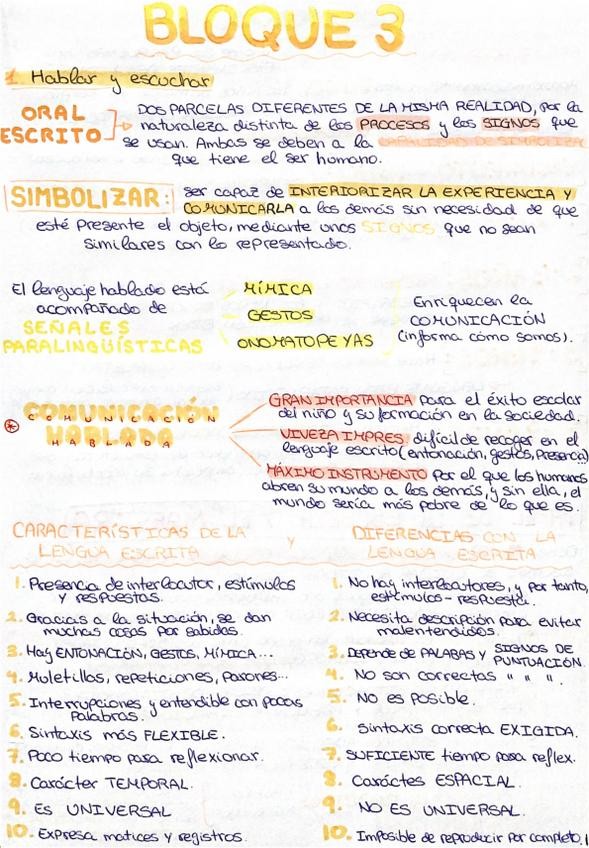 BLOQUE 3
1. Hablar y escuchar
ORAL
ESCRITO
DOS PARCELAS DIFERENTES DE LA MISMA REALIDAD, por la
naturaleza distinta de los PROCESOS y los SIGNOS que
se usan. Ambas se deben a la CAPACIDAD DE SIMBOLIZAR
que tiene el ser humano.
SIMBOLIZAR: ser capaz de INTERIORIZAR LA EXPERIENCIA Y
COMUNICARLA a los demás sin necesidad de que
esté presente el objeto, mediante unos SIGNOS que no sean
similares con lo representado.
El lenguaje hablado está
acompañado de
SEÑALES
PARALINGÜÍSTICAS
MÍMICA
GESTOS
ONOMATOPEYAS
Enriquecen la
COMUNICACIÓN
(informa cómo somos).
COMUNICACIÓN
HABLADA
GRAN IMPORTANCIA para el éxito escolar
del niño y su formación en la sociedad.
VIVEZA IMPRES. difícil de recoger en el
lenguaje escrito (entonación, gestos, presencia)
MÁXIMO INSTRUMENTO por el que los humanos
abren su mundo a los demás, y sin ella, el
mundo sería más pobre de lo que es.
CARACTERÍSTICAS DE LA
LENGUA ESCRITA
y
DIFERENCIAS CON LA
LENGUA ESCRITA
1. Presencia de interlocutor, estímulos
y respuestas.
2. Gracias a la situación, se dan
muchas cosas por sabidas.
3. Hay ENTONACIÓN, GESTOS, MÍMICA...
4. Muletillas, repeticiones, parones...
5. Interrupciones y entendible con pocas
palabras.
6. Sintaxis más FLEXIBLE.
7. Poco tiempo para reflexionar.
8. Carácter TEMPORAL.
9. Es UNIVERSAL
10. Expresa matices y registros.
1. No hay interlocutores, y por tanto,
estímulos - respuesta.
2. Necesita descripción para evitar
malentendidos.
3. Depende de PALABAS y SIGNOS DE
PUNTUACIÓN.
4. No son correctas " " ".
5. NO es posible.
6. Sintaxis correcta EXIGIDA.
7. SUFICIENTE tiempo para reflex.
8. Caráctes ESPACIAL.
9. NO ES UNIVERSAL.
10. Imposible de reproducir por completo.